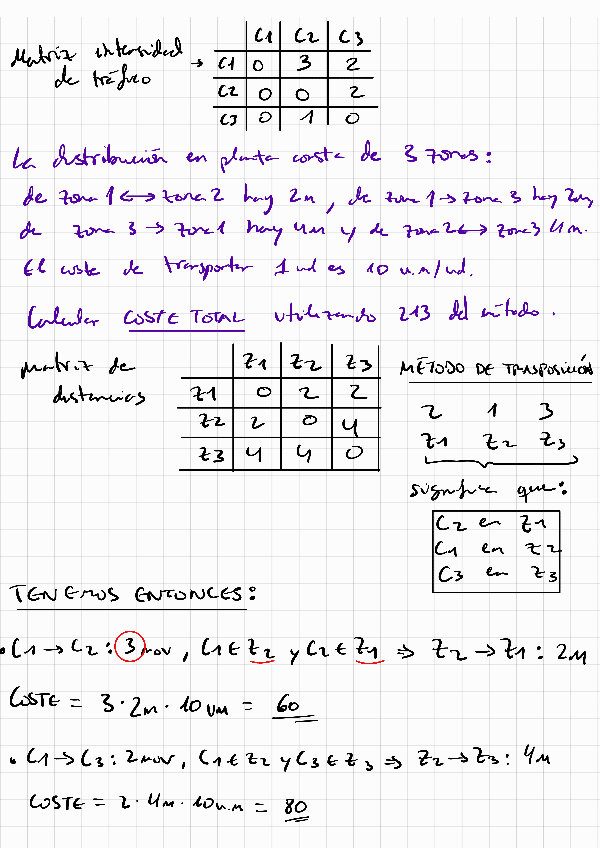 Matriz intensidad de tráfico →
C1 C2 C3
C1 0 3 2
C2 0 0 2
C3 0 1 0
La distribución en planta consta de 3 zonas:
de zona 1 ↔ zona 2 hay 2m, de zona 1 → zona 3 hay 2m y
de zona 3 → zona 1 hay 4m y de zona 2 ↔ zona 3 4m.
El coste de transportar 1 ud es 10 u.m/ud.
Calcular COSTE TOTAL utilizando 213 del método.
Matriz de distancias
Z1 Z2 Z3
Z1 0 2 2
Z2 2 0 4
Z3 4 4 0
MÉTODO DE TRASPOSICIÓN
2 1 3
Z1 Z2 Z3
significa que:
C2 en Z1
C1 en Z2
C3 en Z3
TENEMOS ENTONCES:
• C1 → C2: 3 mov, C1 ∈ Z2 y C2 ∈ Z1 ⇒ Z2 → Z1: 2M
COSTE = 3 · 2M · 10 UM = 60
• C1 → C3: 2 mov, C1 ∈ Z2 y C3 ∈ Z3 ⇒ Z2 → Z3: 4M
COSTE = 2 · 4M · 10 u.m = 80